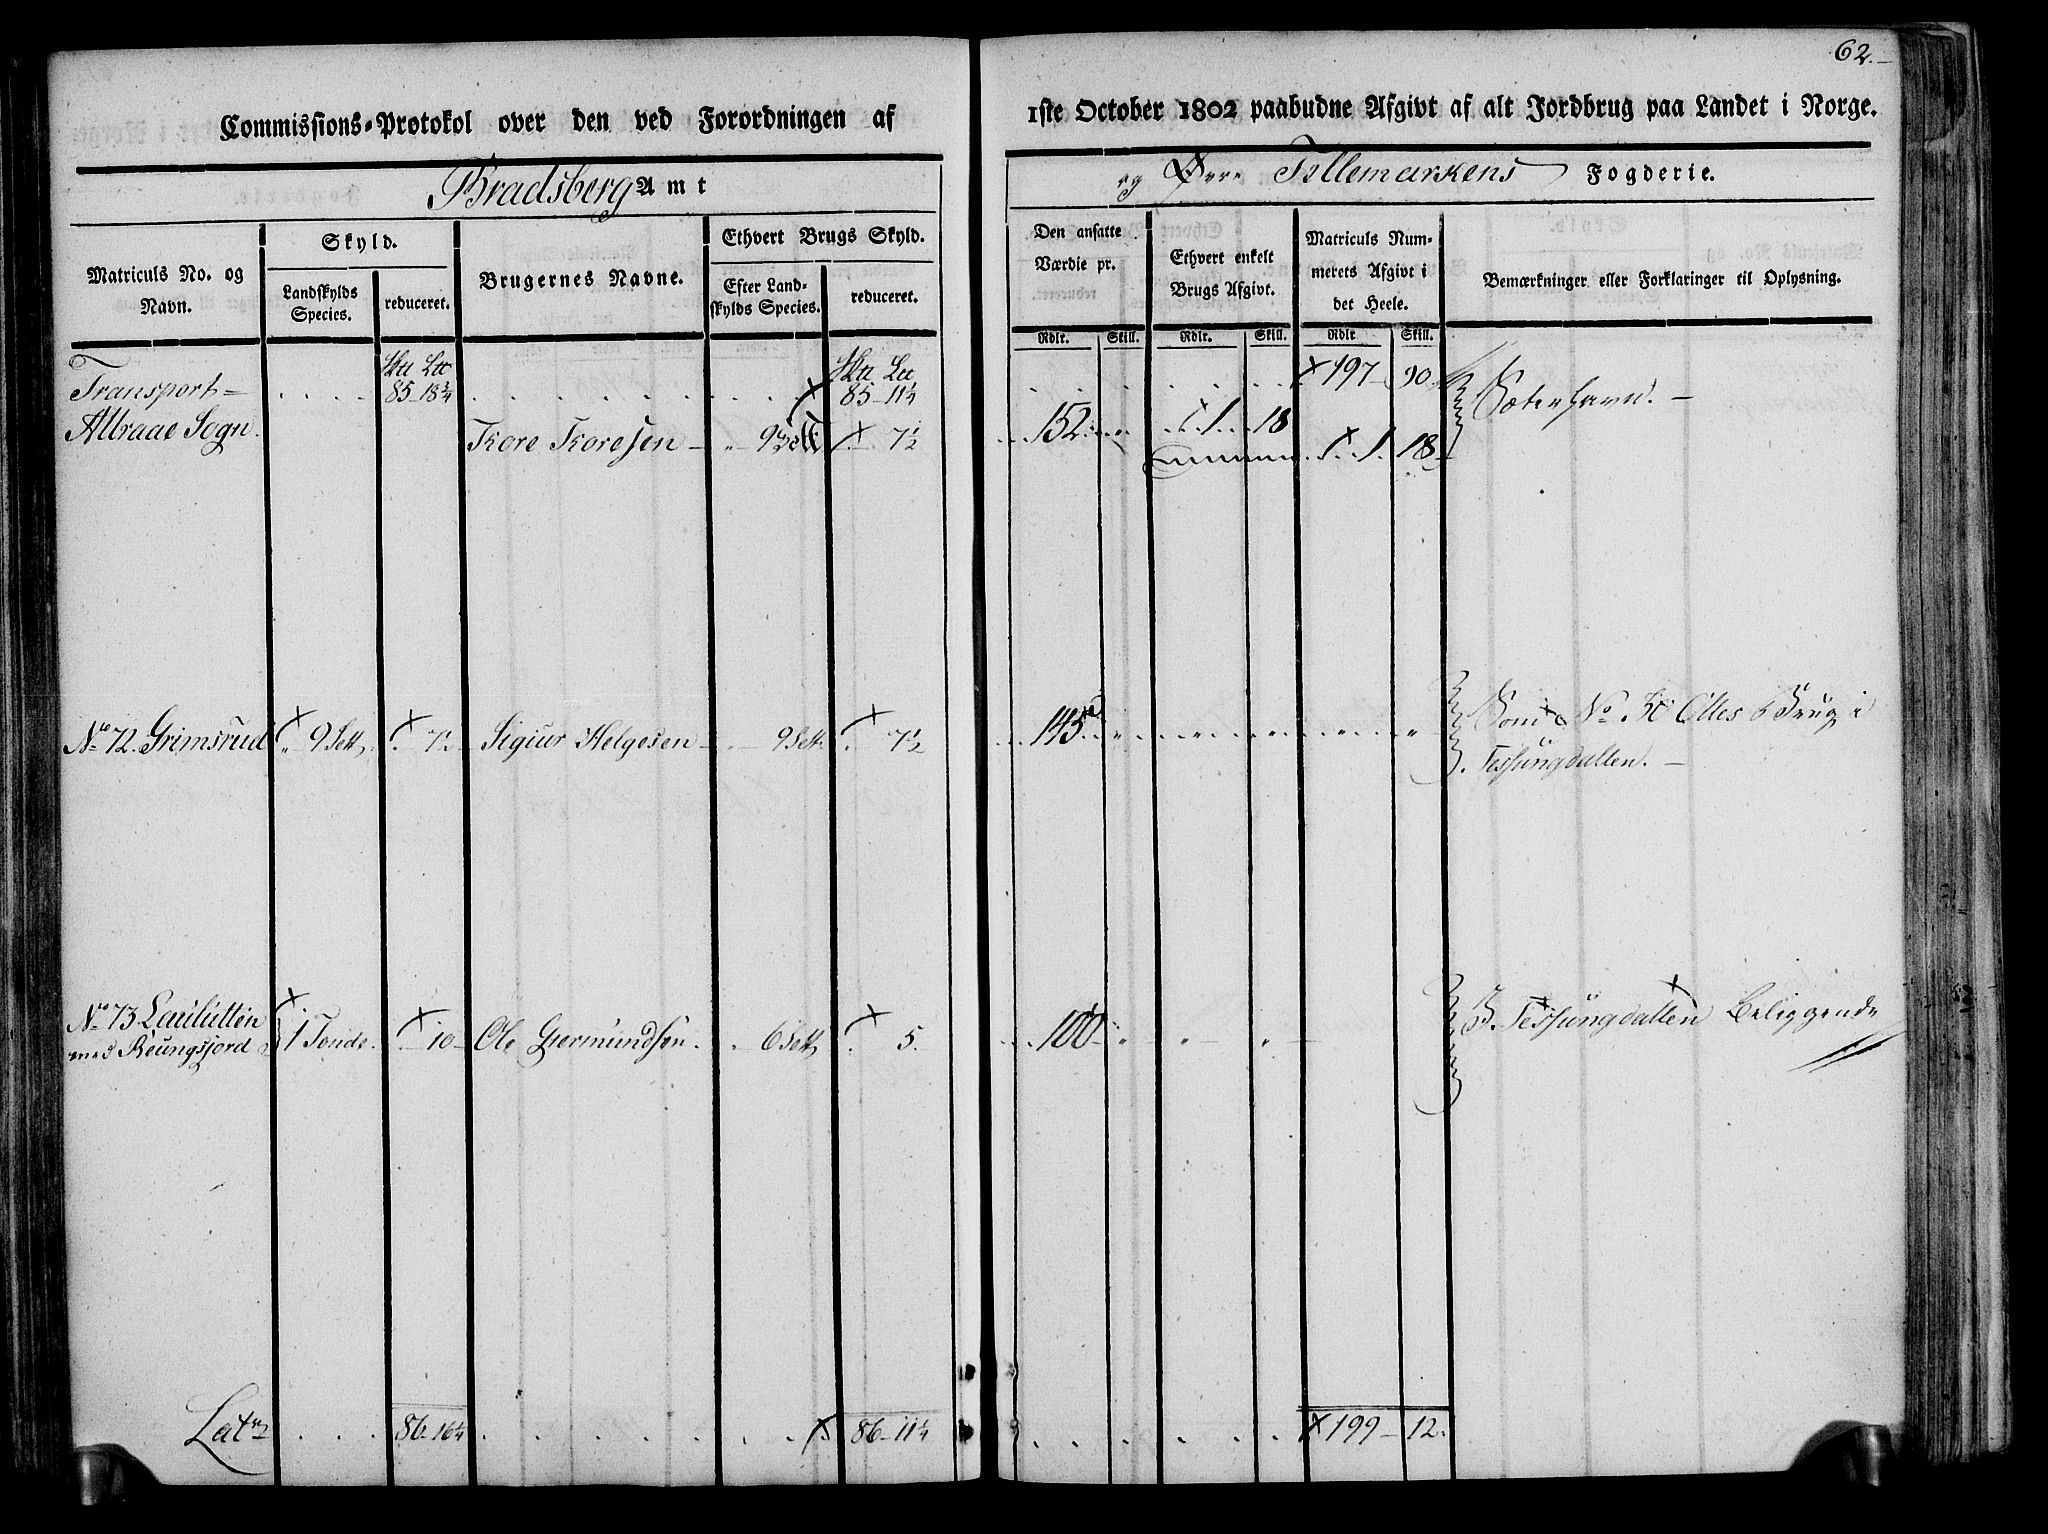 62.
Commissions-Protokol over den ved Forordningen af
1ste October 1802 paabudne Afgivt af alt Jordbrug paa Landet i Norge.
Bradsberg Amt
og Øvre Tellemarkens Fogderie.
Matriculs No. og Navn.
Skyld.
Landskylds Species.
reduceret.
Brugernes Navne.
Ethvert Brugs Skyld.
Efter Landskylds Species.
reduceret.
Den ansatte Værdie pr.
Ethvert enkelt Brugs Afgivt.
Matriculs Nummerets Afgivt i det Heele.
Bemærkninger eller Forklaringer til Oplysning.
Rdlr. Skill. Rdlr. Skill. Rdlr Skill.
Transport 85 18¾ 85 11¼ 197 90
Attraae Sogn.
Tore Toresen 9 7½ 152 1 18 1 18
Sæterhavn.
No 72. Grimsrud 9 Sett 7½ Sigur Helgesen 9 Sett 7½ 145
Som No 50 Brug i
Tessungdallen.
No 73 Laulutten
med Reungsjord 1 Tønde 10 Ole Giermundsen 6 Sett 5. 100
Tessungdallen Beliggende
Lat 86 16¼ 86 11¼ 199 12.